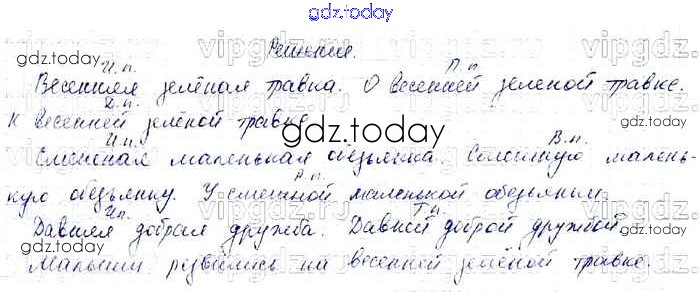 gdz.today
Решение.
gdz.today
И.п. П.п.
Весенняя зелёная травка. О весенней зеленой травке.
Д.п.
К весенней зелёной травке
gdz.today
И.п. В.п.
Смешная маленькая обезьянка. Смешную малень-
кую обезьянку. У смешной маленькой обезьянки.
Р.п.
gdz.today
И.п. Т.п.
Давняя добрая дружба. Давней доброй дружбой
gdz.today
Малыши резвились на весенней зелёной травке.
gdz.today
vipgdz.ru